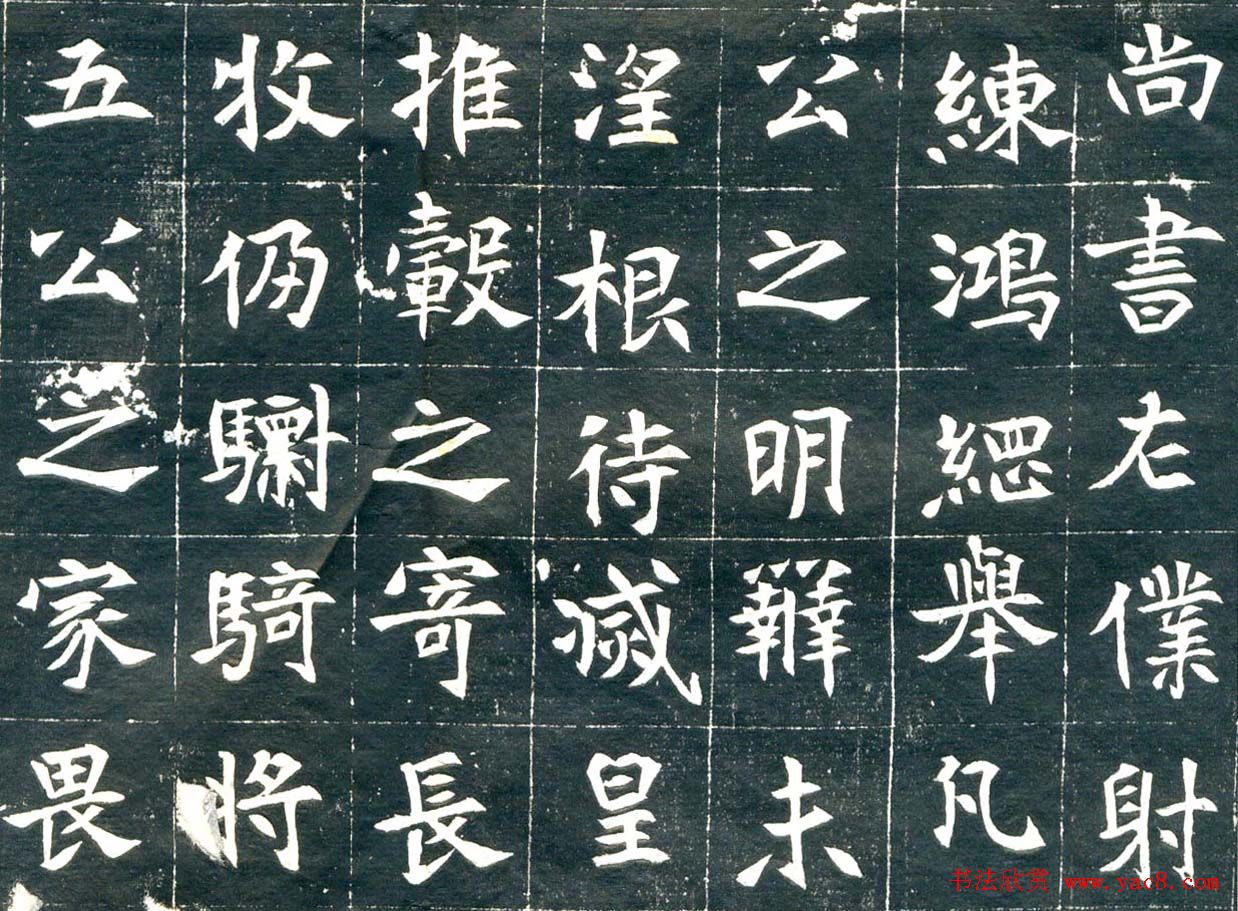 尚書左僕射
練鴻緦舉凡
公之明辨未
淫根待滅皇
推轂之寄長
牧仍騎將
五公之家畏
书法欣赏 www.yac8.com